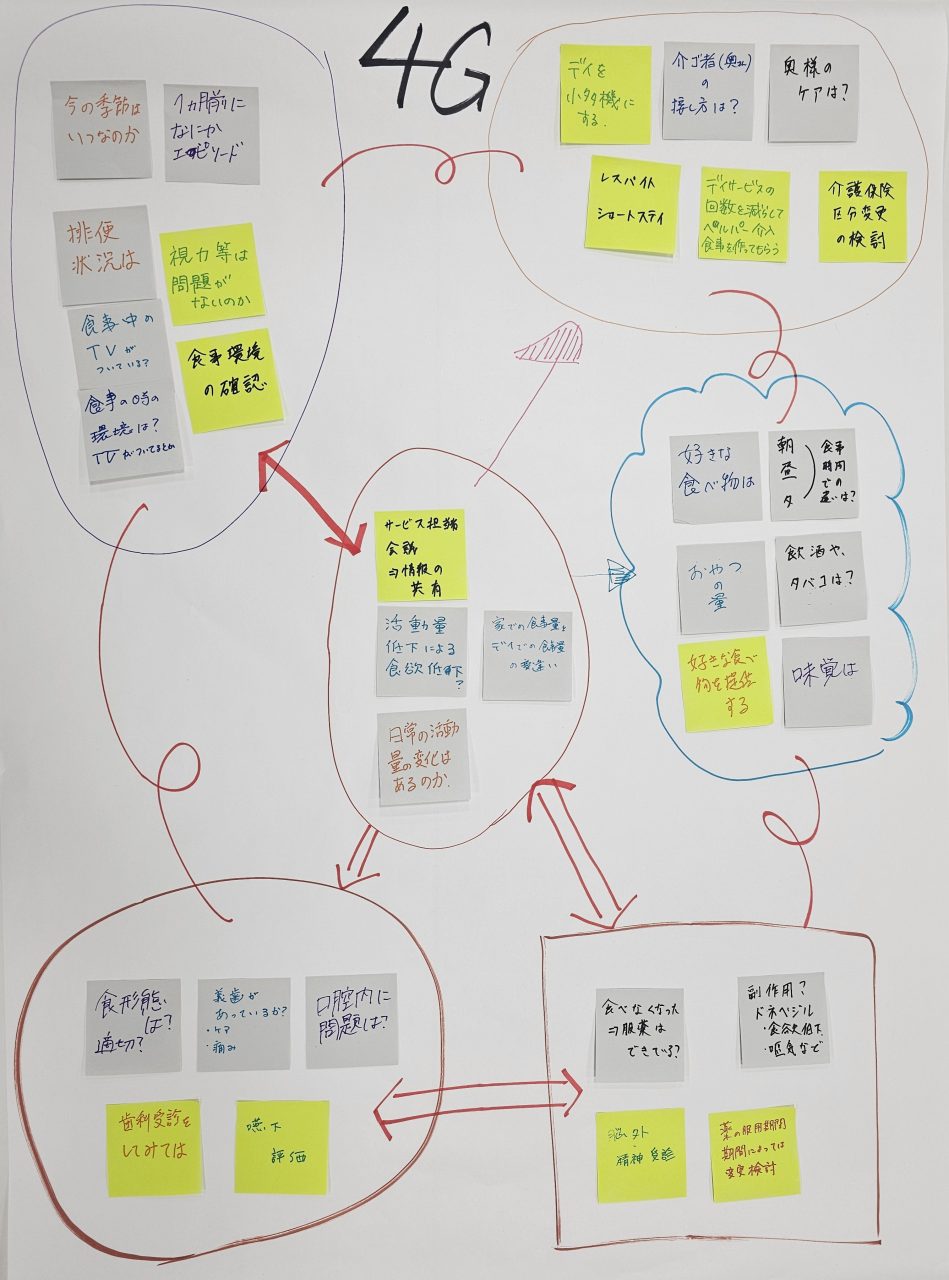 4G
今の季節は
いつなのか
1ヵ月前に
なにか
エピソード
排便
状況は
視力等は
問題が
ないのか
食事中の
TVが
ついている?
食事環境
の確認
食事の時の
環境は?
TVがついてるとか
デイを
小タキ機に
する.
介ゴ者(奥さん)
の
接し方は?
奥様の
ケアは?
レスパイト
ショートステイ
デイサービスの
回数を減らして
ヘルパー介入
食事を作ってもらう
介護保険
区分変更
の検討
サービス担当者
会議
⇒情報の
共有
活動量
低下による
食欲低下?
家での食事量と
デイでの食事量
の違い
日常の活動
量の変化は
あるのか.
好きな
食べ物は
朝
昼
夕
食事
時間
での
違いは?
おやつ
の量
飲酒や、
タバコは?
好きな食べ
物を提供
する
味覚は
食形態
は?
適切?
義歯が
あっているか?
・ケア
・痛み
口腔内に
問題は?
歯科受診を
してみては
嚥下
評価
食べなくなった
⇒服薬は
できている?
副作用?
ドネペジル
・食欲低下
・嘔気など
脳外
・精神受診
薬の服用期間
期間によっては
変更検討